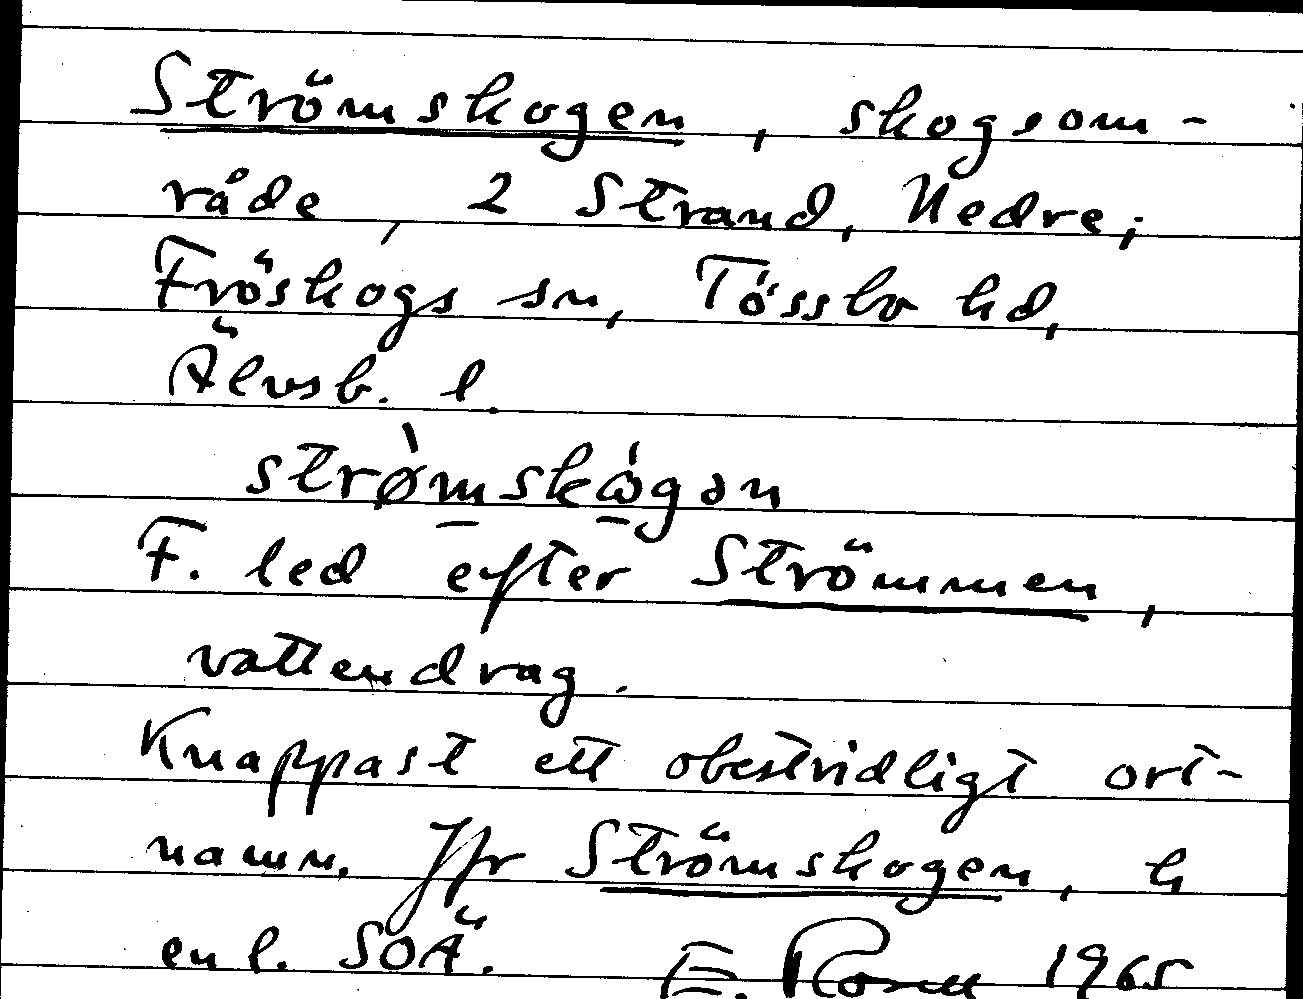 Strömskogen, skogsom-
råde, 2 Strand, Nedre;
Fröskogs sn, Tössbo hd,
Älvsb. l.
strø̀mskå̀gən
F. led efter Strömmen,
vattendrag.
Knappast ett obestridligt ort-
namn. Jfr Strömskogen, h
enl. SOÄ. E. Rosell 1965